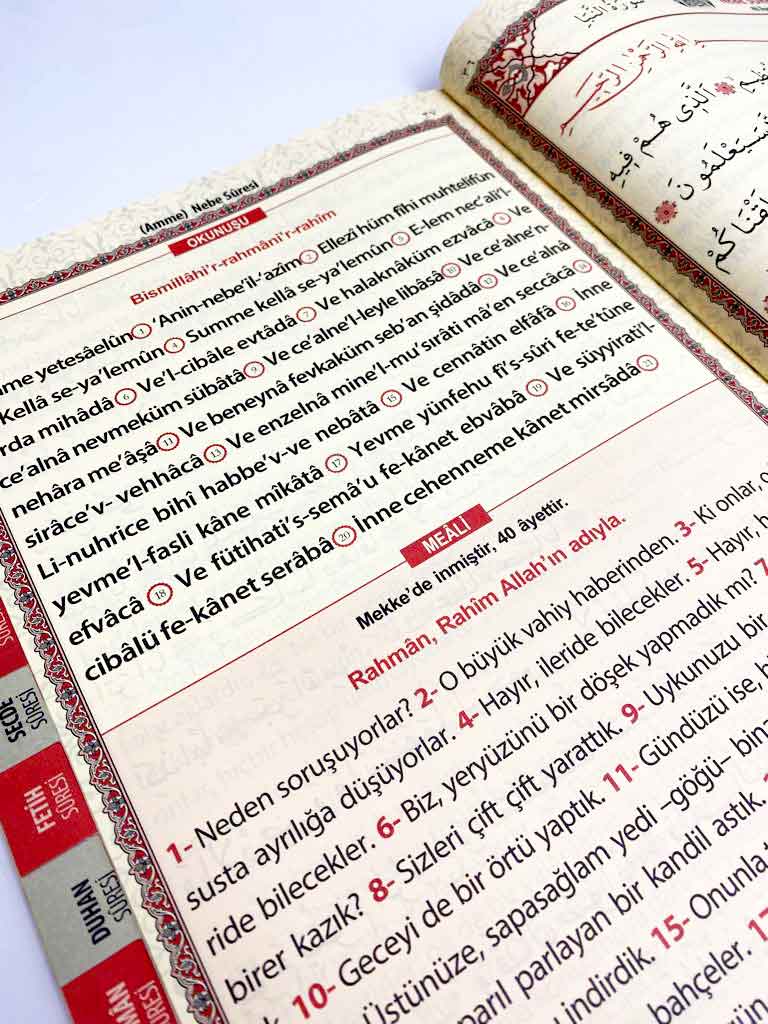 (Amme) Nebe Sûresi
OKUNUŞU
Bismillâhi'r-rahmâni'r-rahîm
yetesâelûn 1 'Anin-nebe'il-'azîm 2 Ellezî hüm fîhi muhtelifûn
Kellâ se-ya'lemûn 4 Summe kellâ se-ya'lemûn 5 E-lem nec'ali'l-
mihâdâ 6 Ve'l-cibâle evtâdâ 7 Ve halaknâküm ezvâcâ 8 Ve
ce'alnâ nevmeküm sübâtâ 9 Ve ce'alne'l-leyle libâsâ 10 Ve ce'alne'n-
nehâra me'âşâ 11 Ve beneynâ fevkaküm seb'an şidâdâ 12 Ve ce'alnâ
sirâce'v- vehhâcâ 13 Ve enzelnâ mine'l-mu'sırâti mâ'en seccâcâ 14
Li-nuhrice bihî habbe'v-ve nebâtâ 15 Ve cennâtin elfâfâ 16 İnne
yevme'l-fasli kâne mîkâtâ 17 Yevme yünfehu fi's-sûri fe-te'tûne
efvâcâ 18 Ve fütihati's-semâ'u fe-kânet ebvâbâ 19 Ve süyyirati'l-
cibâlü fe-kânet serâbâ 20 İnne cehenneme kânet mirsâdâ 21
MEÂLİ
Mekke'de inmiştir, 40 âyettir.
Rahmân, Rahîm Allah'ın adıyla.
1- Neden soruşuyorlar? 2- O büyük vahiy haberinden. 3- Ki onlar,
susta ayrılığa düşüyorlar. 4- Hayır, ileride bilecekler. 5- Hayır,
ride bilecekler. 6- Biz, yeryüzünü bir döşek yapmadık mı?
birer kazık? 8- Sizleri çift çift yarattık. 9- Uykunuzu bir
10- Geceyi de bir örtü yaptık. 11- Gündüzü ise,
Üstünüze, sapasağlam yedi –göğü–
parlayan bir kandil astık.
indirdik. 15- Onunla
bahçeler.
SECDE SÛRESİ
FETİH SÛRESİ
DUHAN SÛRESİ
الَّذِي هُمْ فِيهِ
سَيَعْلَمُونَ